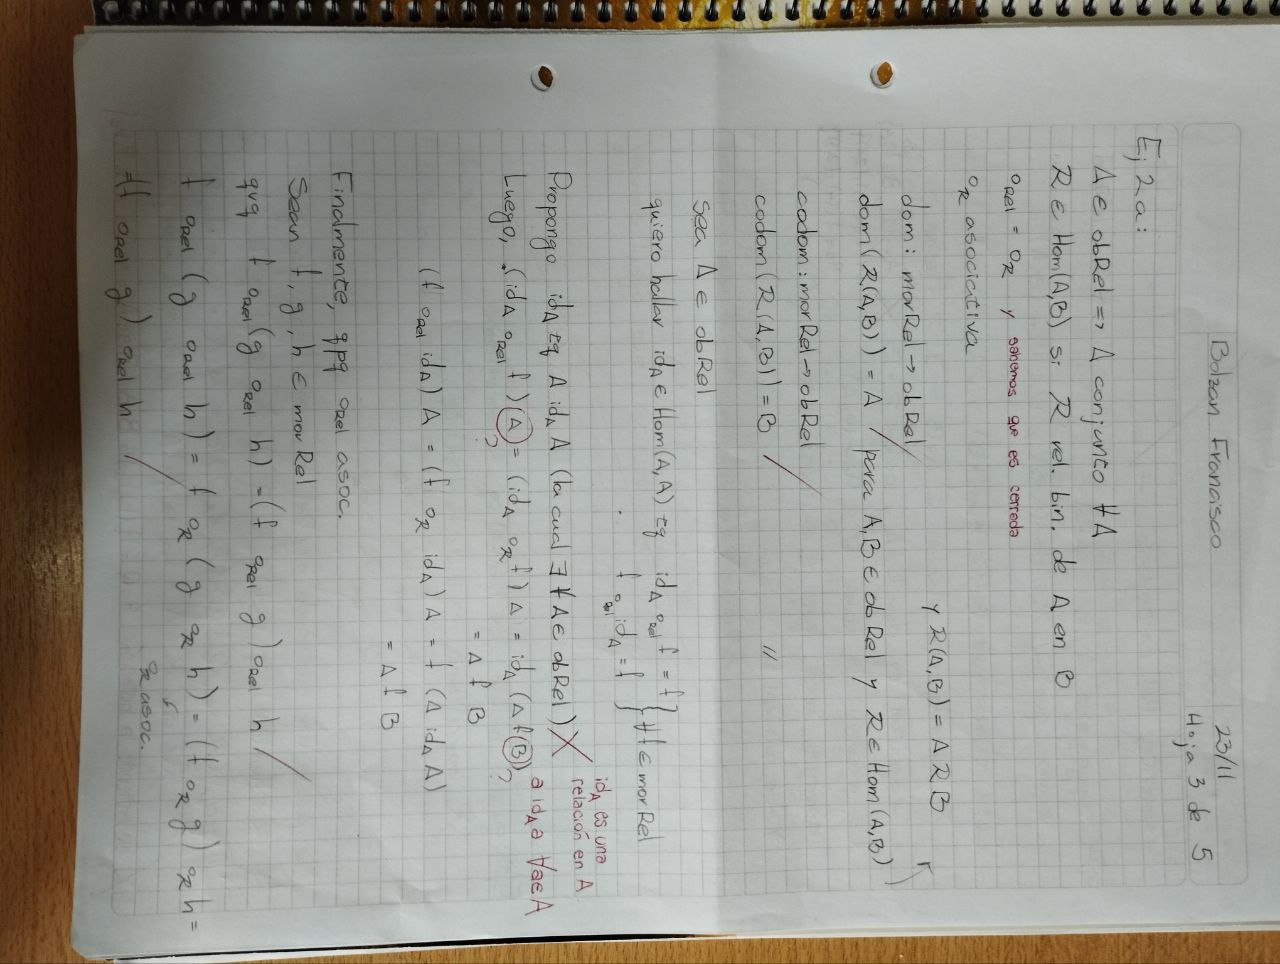 Bolzan Francisco
23/11
Hoja 3 de 5
Ej 2a:
A ∈ obRel => A conjunto ∀A
R ∈ Hom(A,B) si R rel. bin. de A en B
∘Rel = ∘R y sabemos que es cerrada
∘R asociativa
y R(A,B) = A R B
dom: morRel → obRel
dom(R(A,B)) = A para A,B ∈ obRel y R ∈ Hom(A,B)
codom: morRel → obRel
codom(R(A,B)) = B //
sea A ∈ obRel
quiero hallar idA ∈ Hom(A,A) tq idA ∘Rel f = f } ∀f ∈ morRel
f ∘Rel idA = f
idA es una
relación en A
Propongo idA tq A idA A (la cual ∃ ∀A ∈ obRel) X
a idA a ∀a∈A
Luego, (idA ∘Rel f) A = (idA ∘R f) A = idA (A f B)
? ?
= A f B
(f ∘Rel idA) A = (f ∘R idA) A = f (A idA A)
= A f B
Finalmente, qpq ∘Rel asoc.
Sean f, g, h ∈ morRel
qvq f ∘Rel (g ∘Rel h) = (f ∘Rel g) ∘Rel h
f ∘Rel (g ∘Rel h) = f ∘R (g ∘R h) = (f ∘R g) ∘R h =
∘R asoc.
=(f ∘Rel g) ∘Rel h